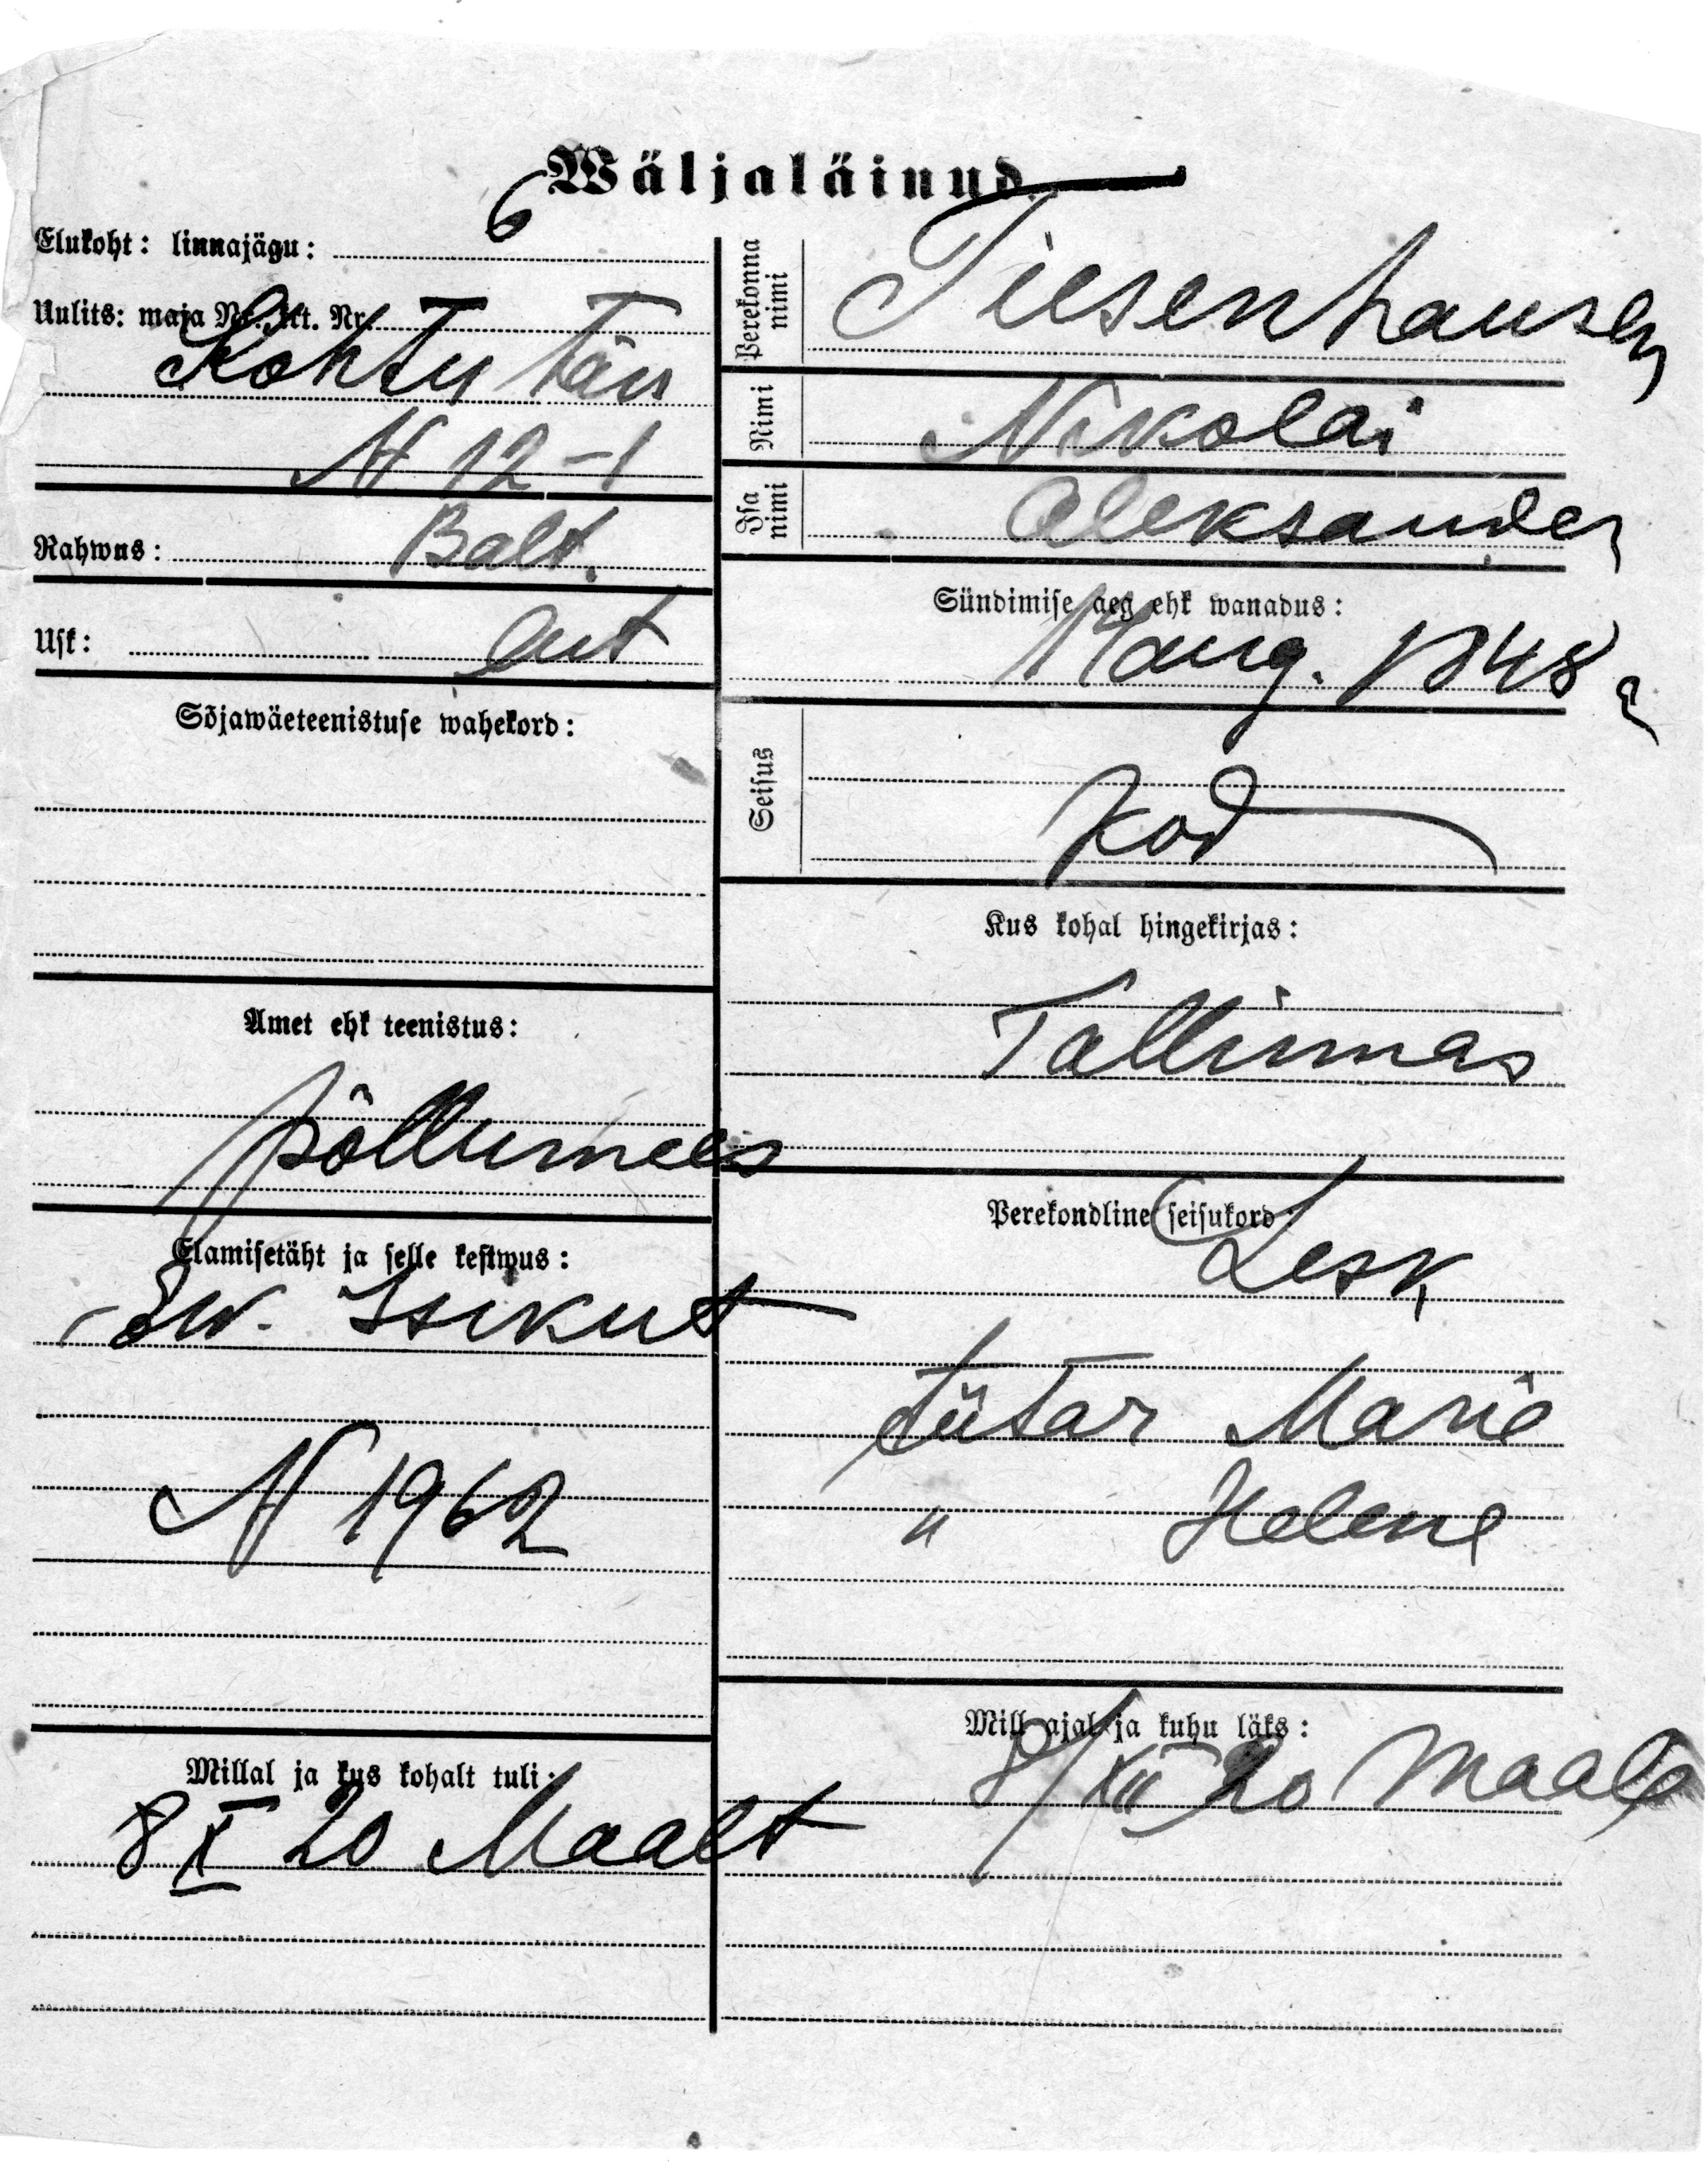 Wäljaläinud
Elukoht: linnajägu: 6
Uulits: maja Nr. krt. Nr.
Kohtu tän
N 12-1
Rahwus: Balt.
Usk: Lut
Sõjawäeteenistuse wahekord:
Amet ehk teenistus:
põllumees
Elamisetäht ja selle kestwus:
Isikut
N 1962
Millal ja kus kohalt tuli:
8 X 20 Maalt
Perekonna nimi
Tiesenhausen
Nimi
Nikolai
Isa nimi
Aleksander
Sündimise aeg ehk wanadus:
14 aug. 1848 a
Seisus
kod
Kus kohal hingekirjas:
Tallinnas
Perekondline seisukord:
Lesk
tütar Marie
" Helene
Mill ajal ja kuhu läks:
8/XII 20 Maale